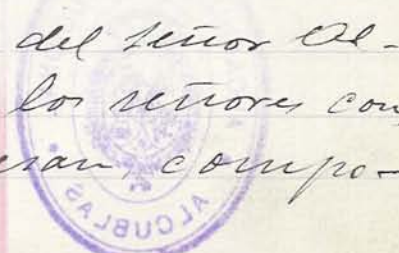 del señor Al-
los señores con
esan, compo-
ALCUBLAS